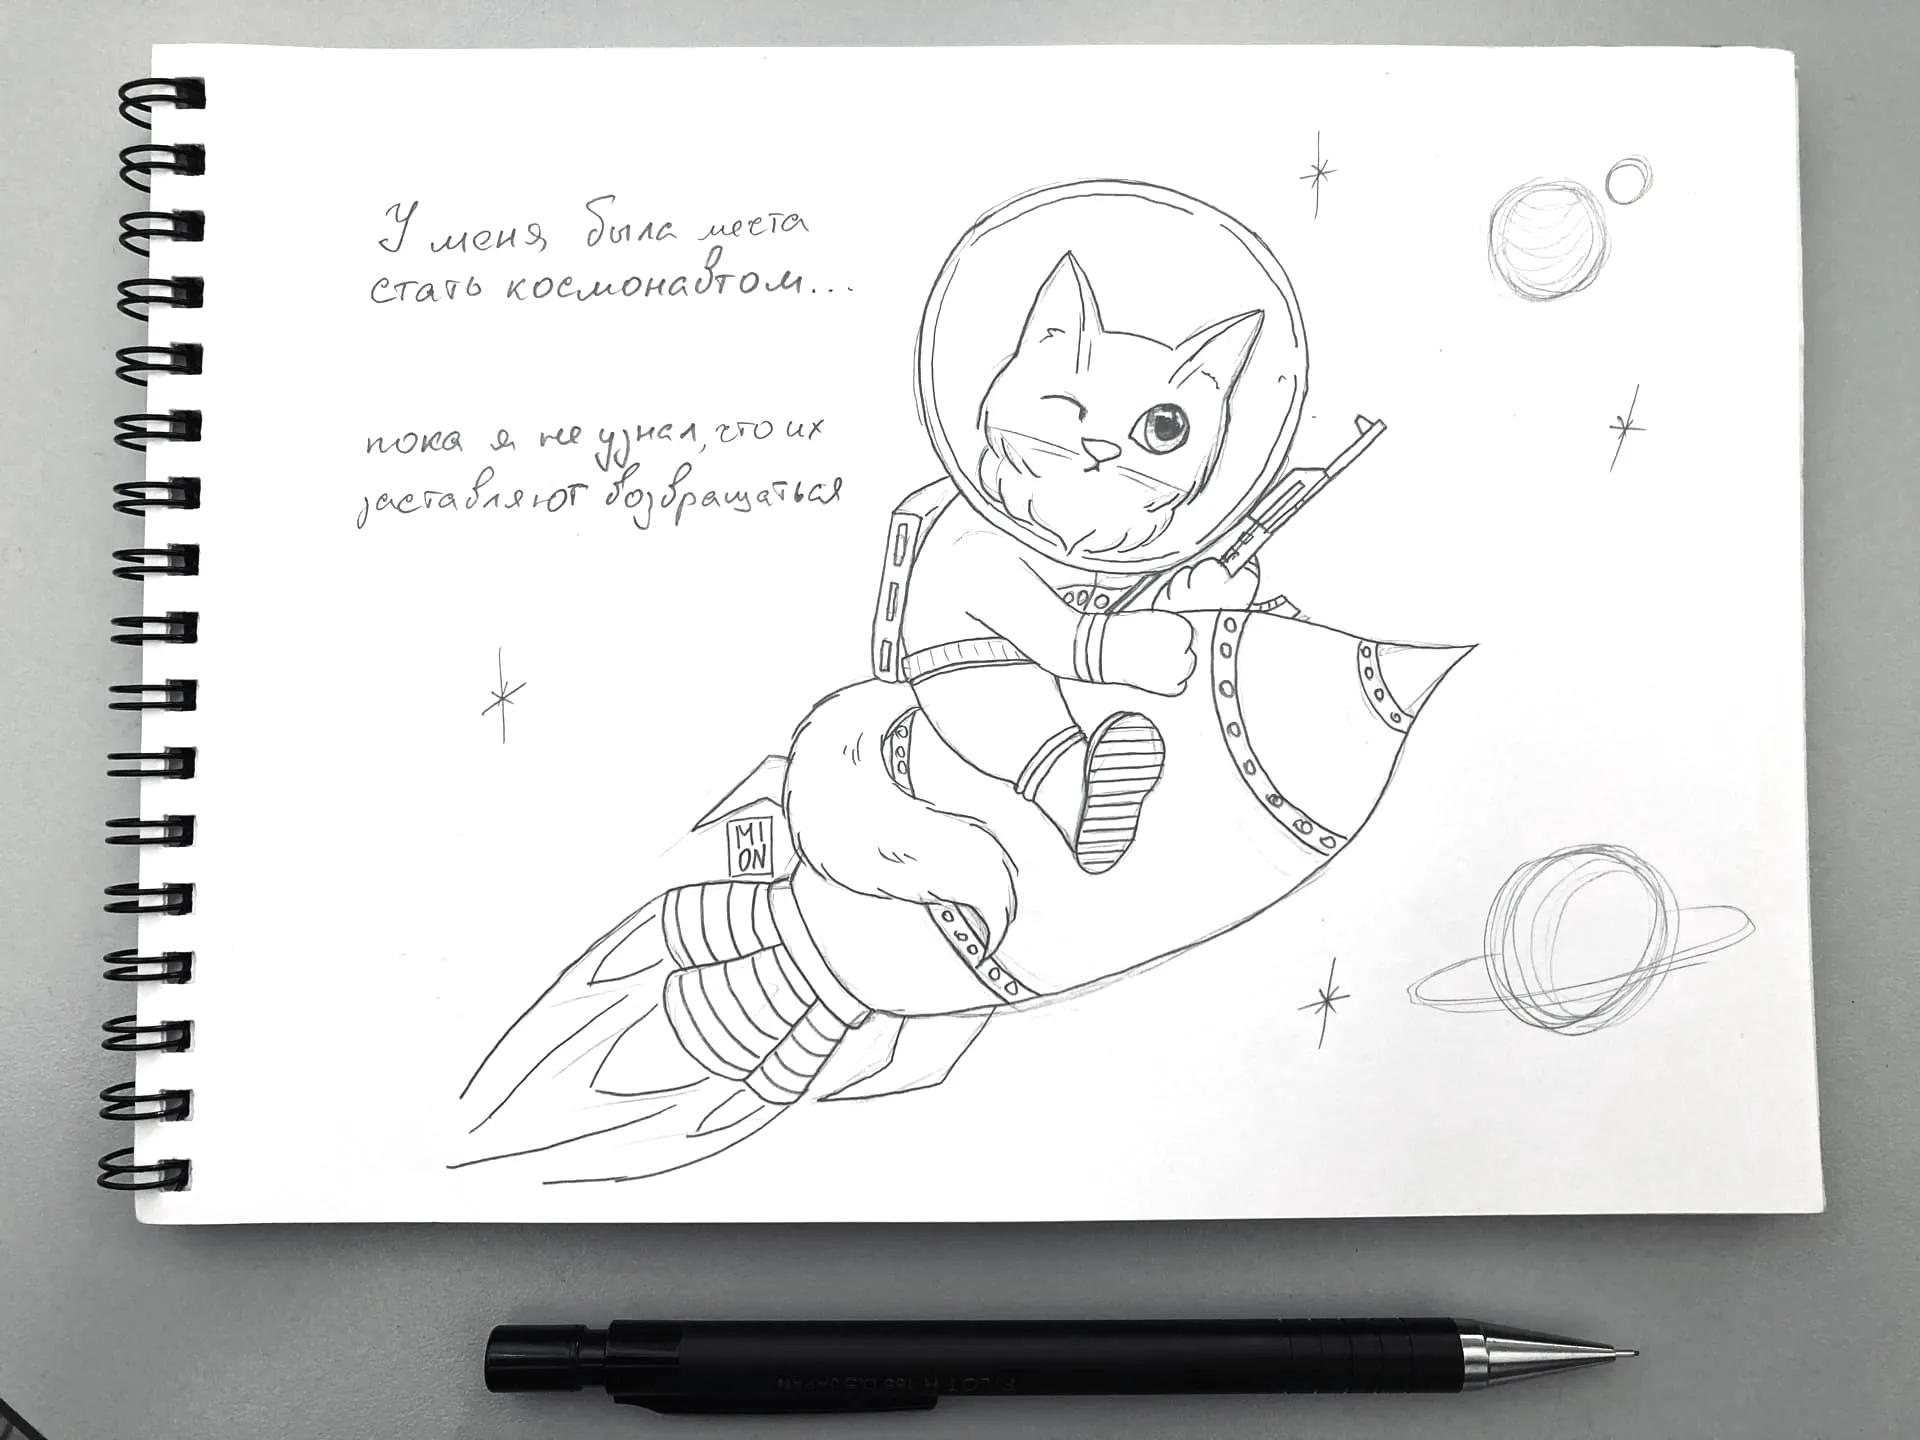 У меня была мечта
стать космонавтом...
пока я не узнал, что их
заставляют возвращаться
MI
ON